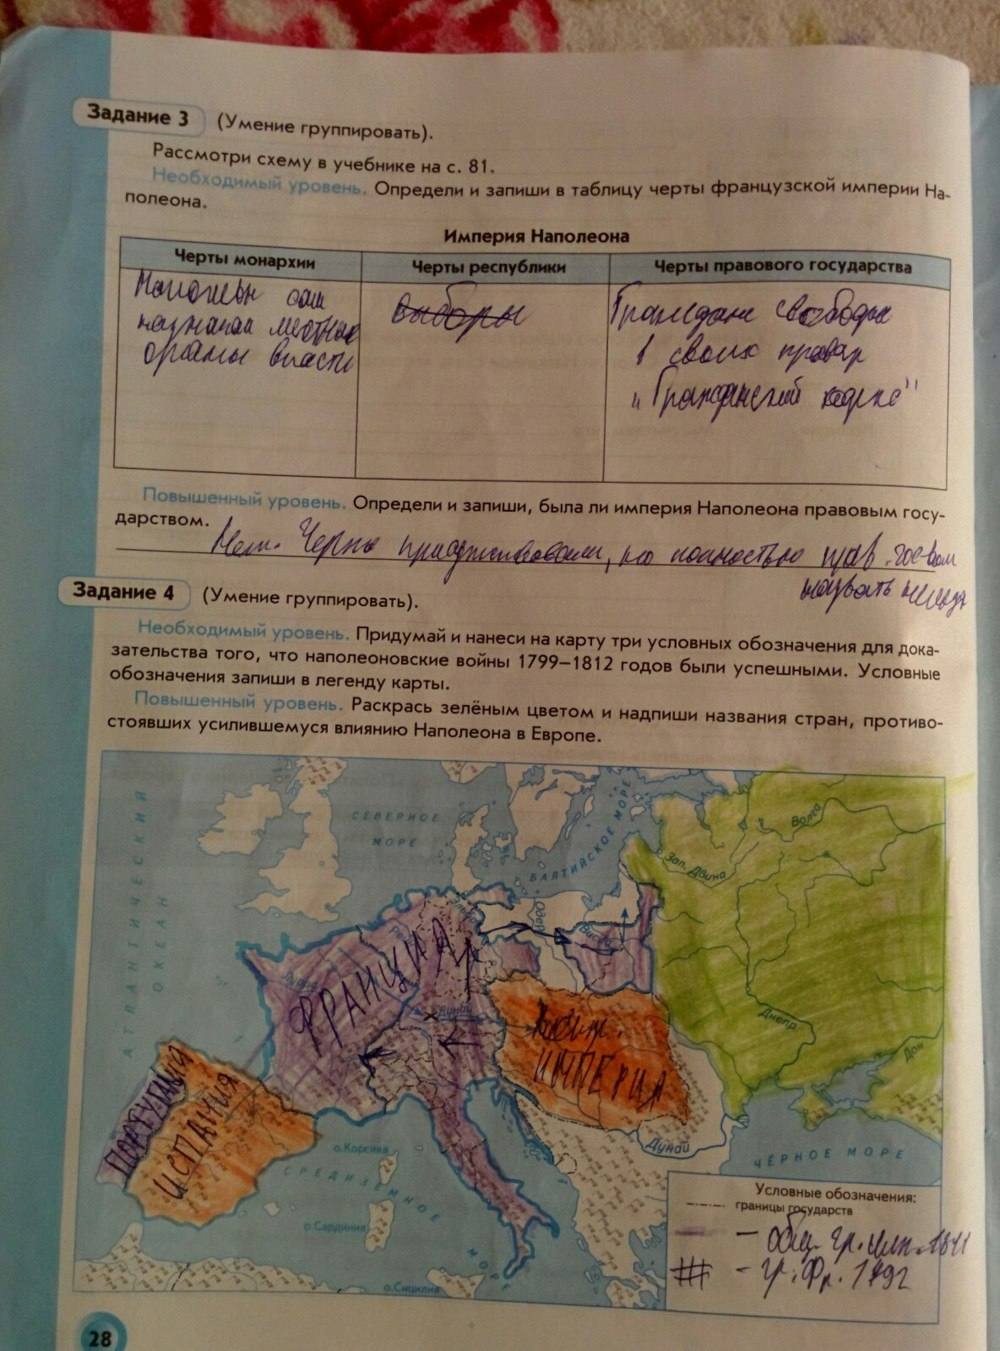 Задание 3 (Умение группировать).
Рассмотри схему в учебнике на с. 81.
Необходимый уровень. Определи и запиши в таблицу черты французской империи На-
полеона.
Империя Наполеона
Черты монархии Черты республики Черты правового государства
Наполеон сам
назначал местные
органы власти
выборы
Граждане свободы
в своих правах
"Гражданский кодекс"
Повышенный уровень. Определи и запиши, была ли империя Наполеона правовым госу-
дарством.
Нет. Черты присутствовали, но полностью прав. гос-вом
назвать нельзя
Задание 4 (Умение группировать).
Необходимый уровень. Придумай и нанеси на карту три условных обозначения для дока-
зательства того, что наполеоновские войны 1799–1812 годов были успешными. Условные
обозначения запиши в легенду карты.
Повышенный уровень. Раскрась зелёным цветом и надпиши названия стран, противо-
стоявших усилившемуся влиянию Наполеона в Европе.
АТЛАНТИЧЕСКИЙ
ОКЕАН
СЕВЕРНОЕ
МОРЕ
БАЛТИЙСКОЕ МОРЕ
Волга
Зап. Двина
Одер
Висла
ФРАНЦИЯ
Дунай
ИМПЕРИЯ
Днепр
Дон
ПОРТУГАЛИЯ
ИСПАНИЯ
о.Корсика
СРЕДИЗЕМНОЕ
МОРЕ
о.Сардиния
о.Сицилия
Дунай
ЧЁРНОЕ МОРЕ
Условные обозначения:
границы государств
– гр. Фр. 1792
28